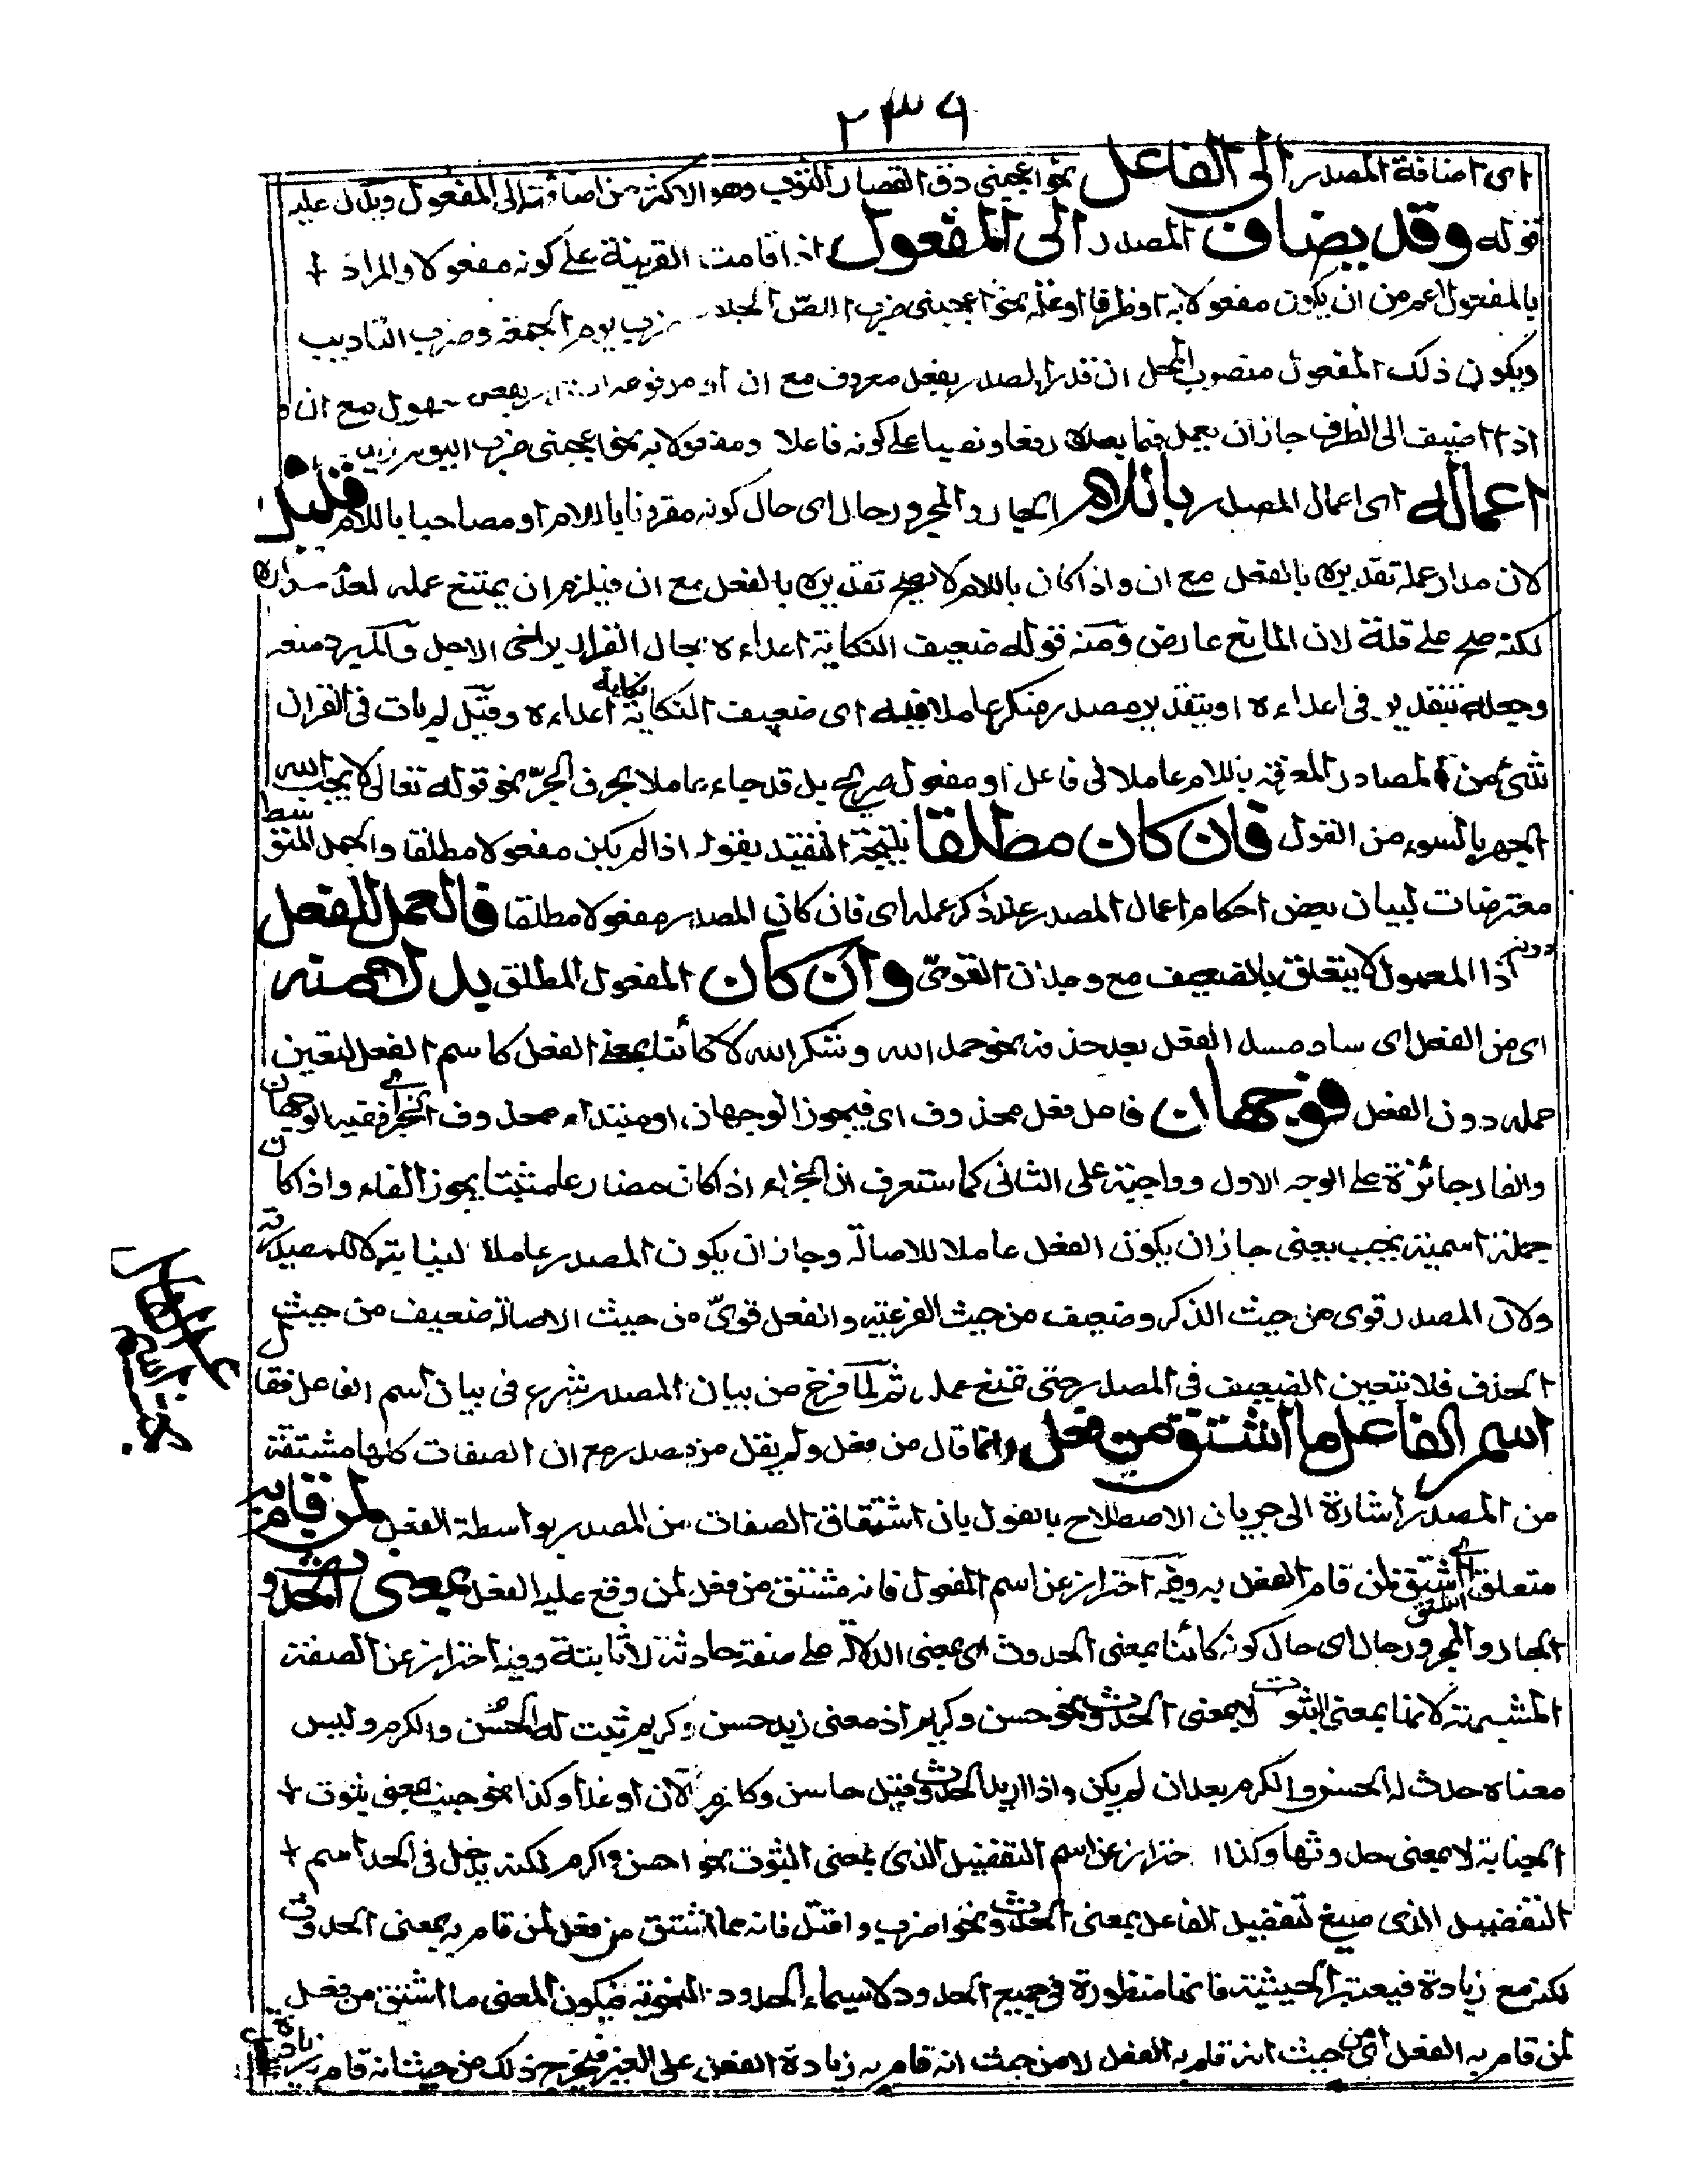 ٢٣٦
اى اضافة المصدر الى الفاعل نحو اعجبنى دق القصار الثوب وهو الاكثر من اضافته الى المفعول ويدل عليه
قوله وقد يضاف المصدر الى المفعول اذا قامت القرينة على كونه مفعولا والمراد
بالمفعول اعم من ان يكون مفعولا به او ظرفا او علة نحو اعجبنى ضرب اللص الجلاد ضرب يوم الجمعة وضرب التاديب
ويكون ذلك المفعول منصوب المحل ان قدر المصدر بفعل معروف مع ان او مرفوعه بفعل مجهول مع ان
اذا اضيف الى الظرف جاز ان يعمل فيما بعده رفعا ونصبا على كونه فاعلا ومفعولا به نحو اعجبنى ضرب اليوم زيد
اعماله اى اعمال المصدر باللام الجار والمجرور حال اى حال كونه مقرونا باللام او مصاحبا باللام قليل
لان مدار عمله تقديره بالفعل مع ان واذا كان باللام لا يصح تقديره بالفعل مع ان فيلزم ان يمتنع عمله لعدم مداره
لكنه صح على قلة لان المانع عارض ومنه قوله ضعيف النكاية اعداءه يخال الفرار يراخى الاجل والمبرد منعه
وجعله بتقدير فى اعداءه او بتقدير مصدر منكر عاملا فيه اى ضعيف النكاية نكاية اعداءه وقيل لم يات فى القران
شئ من المصادر المعرفة باللام عاملا فى فاعل او مفعول صريح بل قد جاء عاملا بحرف الجر نحو قوله تعالى لا يحب الله
الجهر بالسوء من القول فان كان مطلقا نتيجة التقييد بقوله اذا لم يكن مفعولا مطلقا والجمل المتوسط
معترضات لبيان بعض احكام اعمال المصدر عند ذكر عمله اى فان كان المصدر مفعولا مطلقا فالعمل للفعل
دونه اذا المعمول لا يتعلق بالضعيف مع وجدان القوى وان كان المفعول المطلق بدلا منه
اى من الفعل اى ساد مسد الفعل بعد حذفه نحو حمد الله وشكر الله لا كائنا بمعنى الفعل كاسم الفعل لتعين
عمله دون الفعل فوجهان فاعل فعل محذوف اى فيجوز الوجهان او مبتداء محذوف الخبر اى ففيه الوجهان
والفاء جائزة على الوجه الاول وواجبة على الثانى كما ستعرف ان الجزاء اذا كان مضارعا مثبتا يجوز الفاء واذا كان
جملة اسمية يجب يعنى جاز ان يكون الفعل عاملا للاصالة وجاز ان يكون المصدر عاملا لنيابته لا للمصدرية
ولان المصدر قوى من حيث الذكر وضعيف من حيث الفرعية والفعل قوى من حيث الاصالة ضعيف من حيث
الحذف فلا نتعين الضعيف فى المصدر حتى تمنع عمله ثم لما فرغ من بيان المصدر شرع فى بيان اسم الفاعل فقال
اسم الفاعل ما اشتق من فعل وانما قال من فعل ولم يقل من مصدر مع ان الصفات كلها مشتقة
من المصدر اشارة الى جريان الاصطلاح بالقول بان اشتقاق الصفات من المصدر بواسطة الفعل لمن قام به
متعلق اشتق اى اشتق لمن قام الفعل به وفيه احتراز عن اسم المفعول فانه مشتق من فعل لمن وقع عليه الفعل بمعنى الحدوث
الجار والمجرور حال اى حال كونه كائنا بمعنى الحدوث اى بمعنى الدلالة على صفة حادثة لا ثابتة وفيه احتراز عن الصفة
المشبهة لانها بمعنى الثبوت لا بمعنى الحدوث نحو حسن وكريم اذ معنى زيد حسن وكريم ثبت له الحسن والكرم وليس
معناه حدث له الحسن والكرم بعد ان لم يكن واذا اريد الحدوث قيل حاسن وكارم الان او غدا وكذا نحو جنب بمعنى ثبوت
الجنابة لا بمعنى حدوثها وكذا احتراز عن اسم التفضيل الذى بمعنى الثبوت نحو احسن واكرم لكنه يدخل فى الحد اسم
التفضيل الذى صيغ لتفضيل الفاعل بمعنى الحدوث نحو اضرب واقتل فانه مما اشتق من فعل لمن قام به بمعنى الحدوث
لكنه مع زيادة فيعتبر الحيثية فانها منظورة فى جميع الحدود لا سيما الحدود النحوية فيكون المعنى ما اشتق من فعل
لمن قام به الفعل اى من حيث انه قام به الفعل لا من حيث انه قام به زيادة الفعل على الغير فيخرج ذلك من حيث انه قام به زيادة